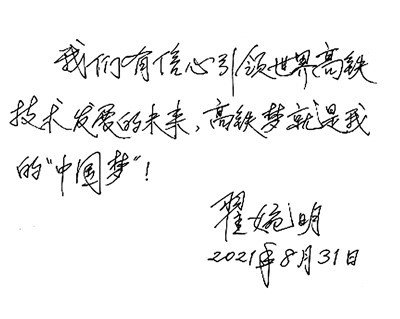 我们有信心引领世界高铁
技术发展的未来，高铁梦就是我
的“中国梦”！
翟婉明
2021年8月31日